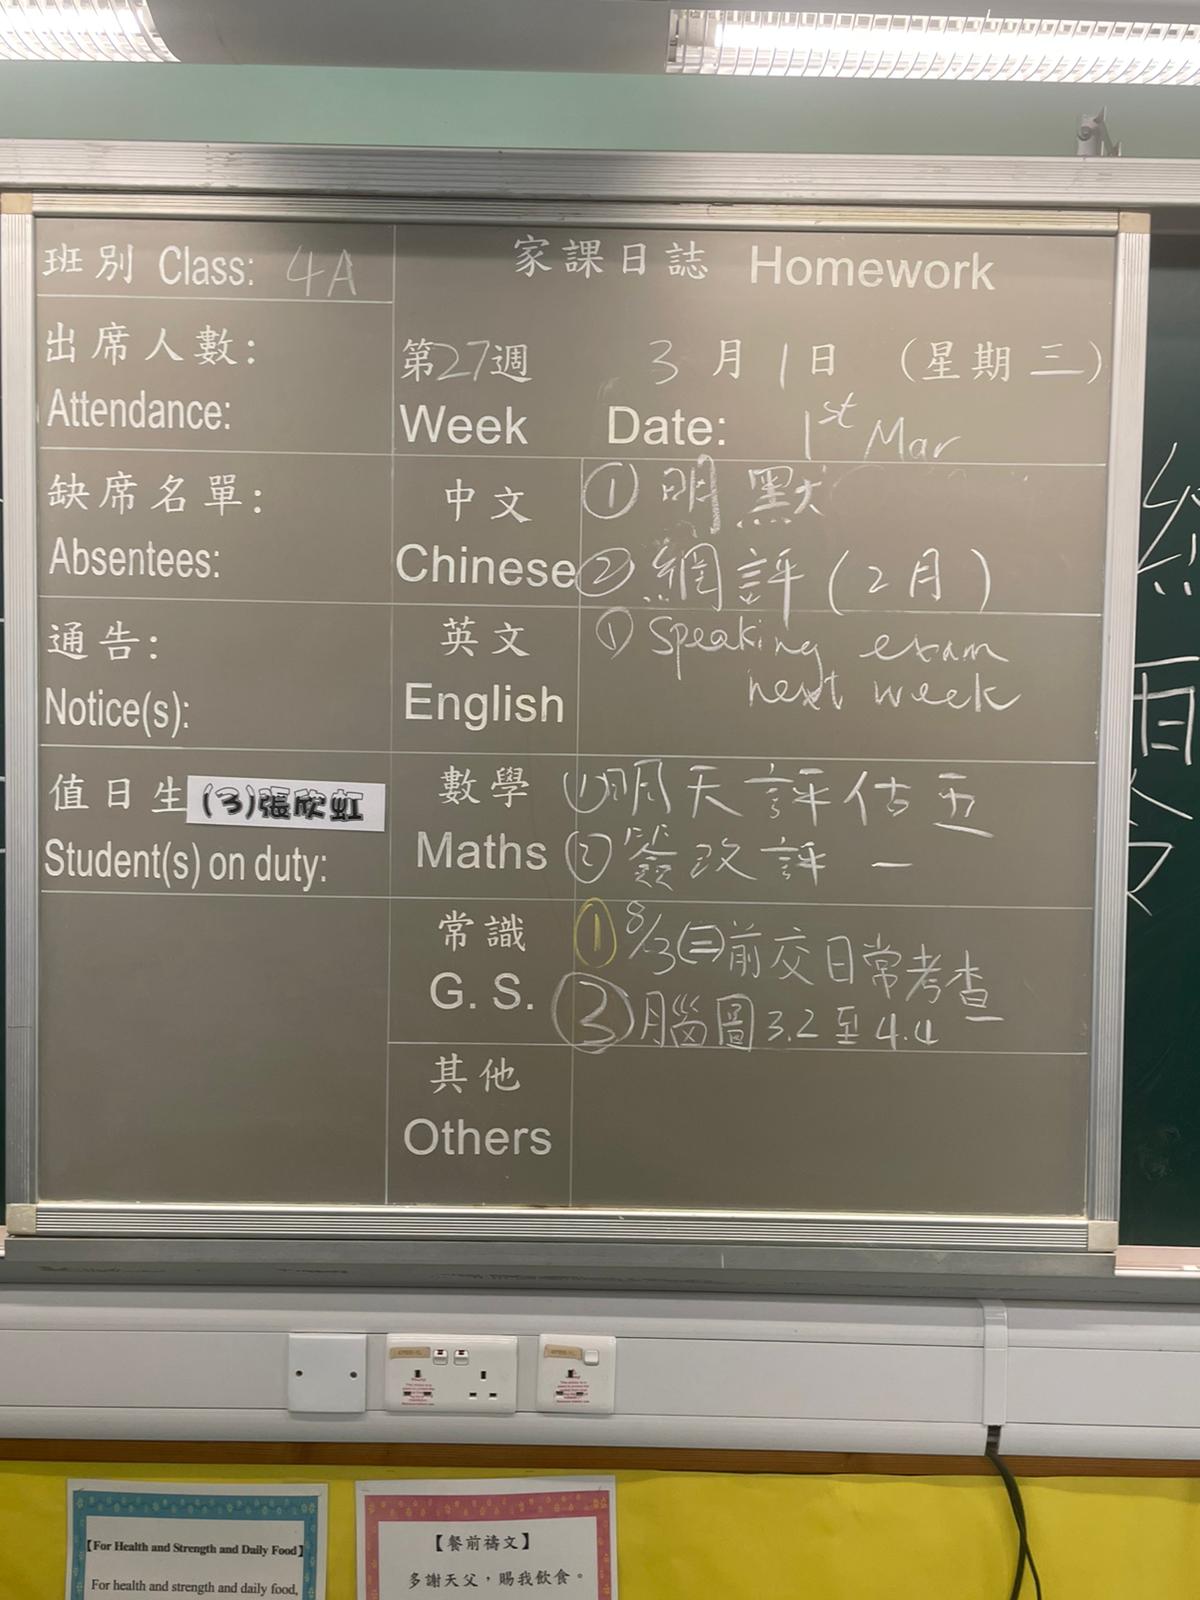 班別 Class: 4A
出席人數:
Attendance:
缺席名單:
Absentees:
通告:
Notice(s):
值日生 (3)張欣虹
Student(s) on duty:
家課日誌 Homework
第27週 3月1日 (星期三)
Week Date: 1st Mar
中文 ①明默
Chinese ②網評(2月)
英文 ①Speaking exam
English next week
數學 ①明天評估五
Maths ②簽改評一
常識 ①8/3(三)前交日常考查
G. S. ③腦圖3.2至4.4
其他
Others
【For Health and Strength and Daily Food】
For health and strength and daily food,
【餐前禱文】
多謝天父，賜我飲食。